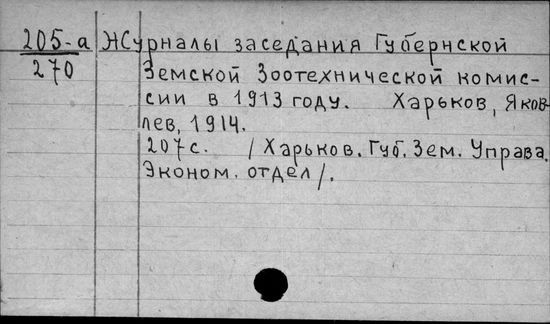 205-а Журналы заседания Губернской
270 Земской Зоотехнической комис-
сии в 1913 году. Харьков, Яков
лев, 1914.
207с. /Харьков. Губ. Зем. Управа.
Эконом. отдел/.